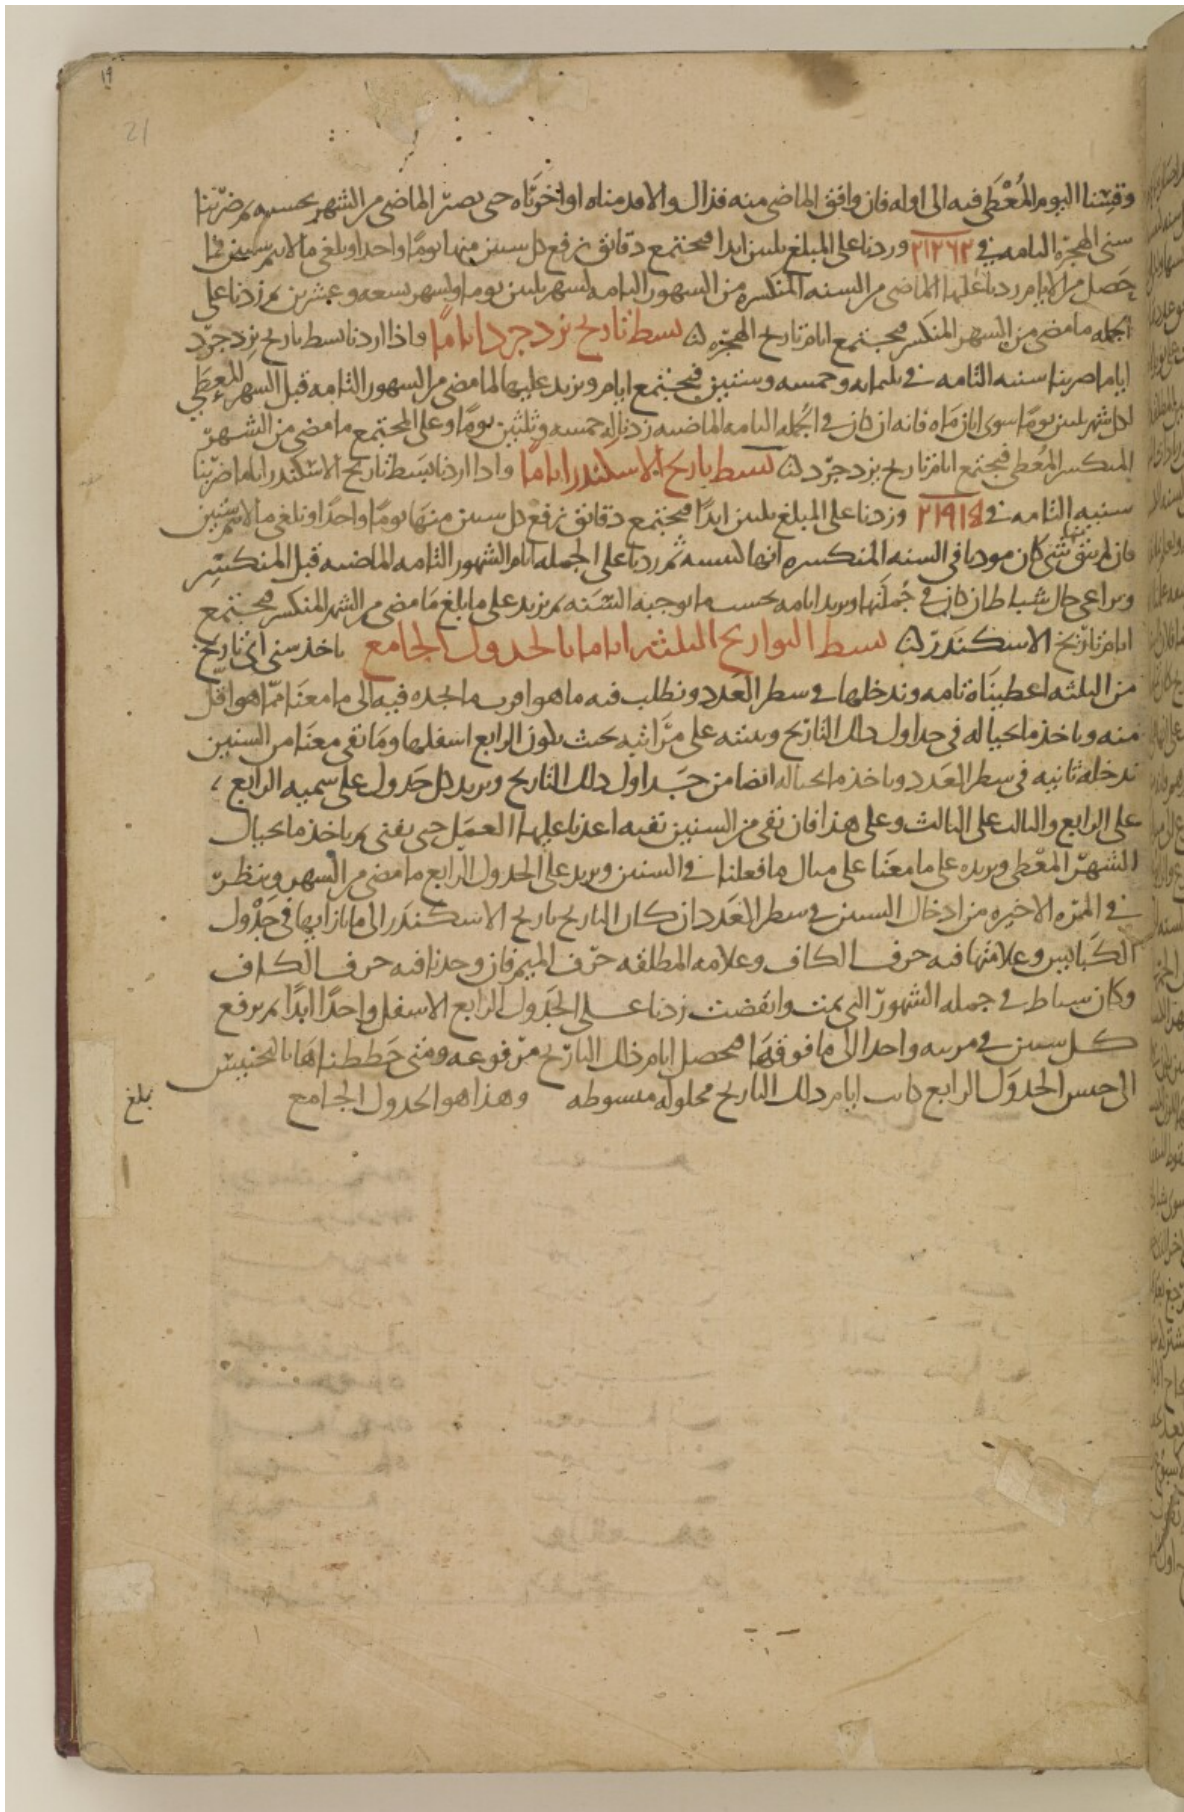 ١٩
21
وقسنا اليوم المُعْطَى فيه الى اوله فان وافق الماضى منه فذالـ والا قدمناه او اخرناه حى يصير الماضى مر الشهر بحسبه ثم ضربنا
سنى الهجرة التامه فى ٢١٢٦٢ وزدنا على المبلغ ثلثين ابدا فيجتمع دقائق نرفع كل ستين منها يومًا واحدا ونلغى ما لا يتم ستين فما
حَصل من الايام زدنا عليها الماضى من السنه المنكسره من الشهور التامه لشهر ثلثين يوما ولشهر تسعه وعشرين ثم زدنا على
الجمله ما مضى من الشهر المنكسر فيجتمع ايام تاريخ الهجره لنا بسط تاريخ يزدجرد اياما واذا اردنا بسط تاريخ يزدجرد
اياما ضربنا سنيه التامه فى ثلثمايه وخمسه وستين فيجتمع ايام ونزيد عليها لما مضى من الشهور التامه قبل الشهر المُعطَى
لكل شهر ثلثين يومًا سوى ابان ماه فانه ان كان فى الجمله التامه الماضيه زدنا له خمسه وثلثين يومًا وعلى المجتمع ما مضى من الشهر
المنكسر المُعطى فيجتمع ايام تاريخ يزدجرد لنا بسط تاريخ الاسكندر اياما واذا اردنا بسط تاريخ الاسكندر اياما ضربنا
سنيه التامه فى ٢١٩١٥ وزدنا على المبلغ ثلثين ابدًا فيجتمع دقائق نرفع كل ستين منها يومًا واحدًا ونلغى ما لا يتم ستين
فان لم يبق منها شى كان موديا فى السنه المنكسره انها كبيسه ثم زدنا على الجمله ايام الشهور التامه الماضيه قبل المنكسر
ونراعى حال شباط ان كان فى جُملتها ونزيد ايامه بحسب ما توجبه السَنه ثم نزيد على ما بلغ مَا مضى من الشهر المنكسر فيجتمع
ايام تاريخ الاسكندر لنا بسط التواريخ الثلثه اياما بالجدول الجامع ناخذ سنى اى تاريخ
من الثلثه اعطيناه تامه وندخلها فى سطر العَدد ونطلب فيه ما هو اقرب ما نجده فيه الى ما معنَا مما هو اقل
منه وناخذ ما بحياله فى جداول ذلك التاريخ ونثبته على مَراتبه بحيث يكون الرابع اسفلها ومَا بقى معنَا من السنين
ندخله ثانيه فى سطر العَدد وناخذ ما بحياله ايضا من جَداول ذلك التاريخ ونزيد كل جَدول على سميه الرابع ،
على الرابع والثالث على الثالث وعلى هذا فان بقى من السنين بقيه اعدنا عليها العمَل حى يفنى ثم ناخذ ما بحيال
الشهر المُعْطى ونزيده على ما معنَا على مثال ما فعلنا فى السنين ونزيد على الجدول الرابع ما مضى من الشهر وننظر
فى المره الاخيره من ادخال السنين فى سطر العَدد ان كان التاريخ تاريخ الاسكندر الى ما بازايها فى جَدْول
الكَبايس وعلامتها فيه حرف الكاف وعلامه المطلقه حرف الميم فان وجدنا فيه حرف الكاف
وكان شباط فى جمله الشهور التى تمت وانقضت زدنا على الجَدول الرابع الاسفل واحدًا ابدًا ثم نرفع
كل ستين فى مرتبه واحدا الى ما فوقهَا فيحصل ايام ذلك التاريخ مرفوعه ومتى حططناهَا بالتجنيس
الى جنس الجدوَل الرابع كانت ايام ذلك التاريخ محلوله مبسوطه وهذا هو الجدول الجامع
بلغ